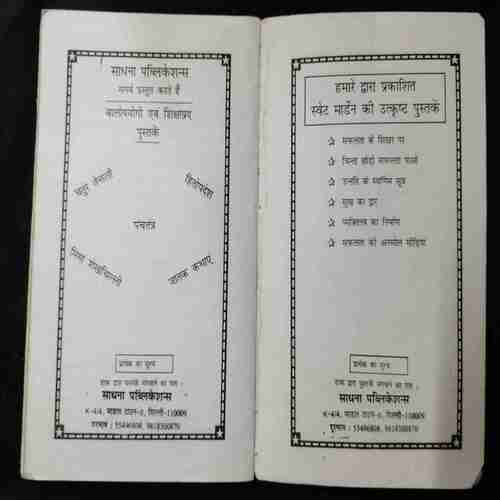 साधना पब्लिकेशन्स
सगर्व प्रस्तुत करते हैं
बालोपयोगी एवं शिक्षाप्रद
पुस्तकें
चतुर तेनाली
हितोपदेश
पंचतंत्र
मियां शेखचिल्ली
जातक कथाएं
प्रत्येक का मूल्य
डाक द्वारा पुस्तकें मंगवाने का पता :
साधना पब्लिकेशन्स
K-4/4, माडल टाउन-II, दिल्ली-110009
दूरभाष : 55496808, 9818300870
हमारे द्वारा प्रकाशित
स्वेट मार्डेन की उत्कृष्ट पुस्तकें
सफलता के शिखर पर
चिन्ता छोड़ो सफलता पाओ
उन्नति के स्वर्णिम सूत्र
सुख का द्वार
व्यक्तित्व का निर्माण
सफलता की अनमोल सीढ़ियां
प्रत्येक का मूल्य
डाक द्वारा पुस्तकें मंगवाने का पता :
साधना पब्लिकेशन्स
K-4/4, माडल टाउन-II, दिल्ली-110009
दूरभाष : 55496808, 9818300870